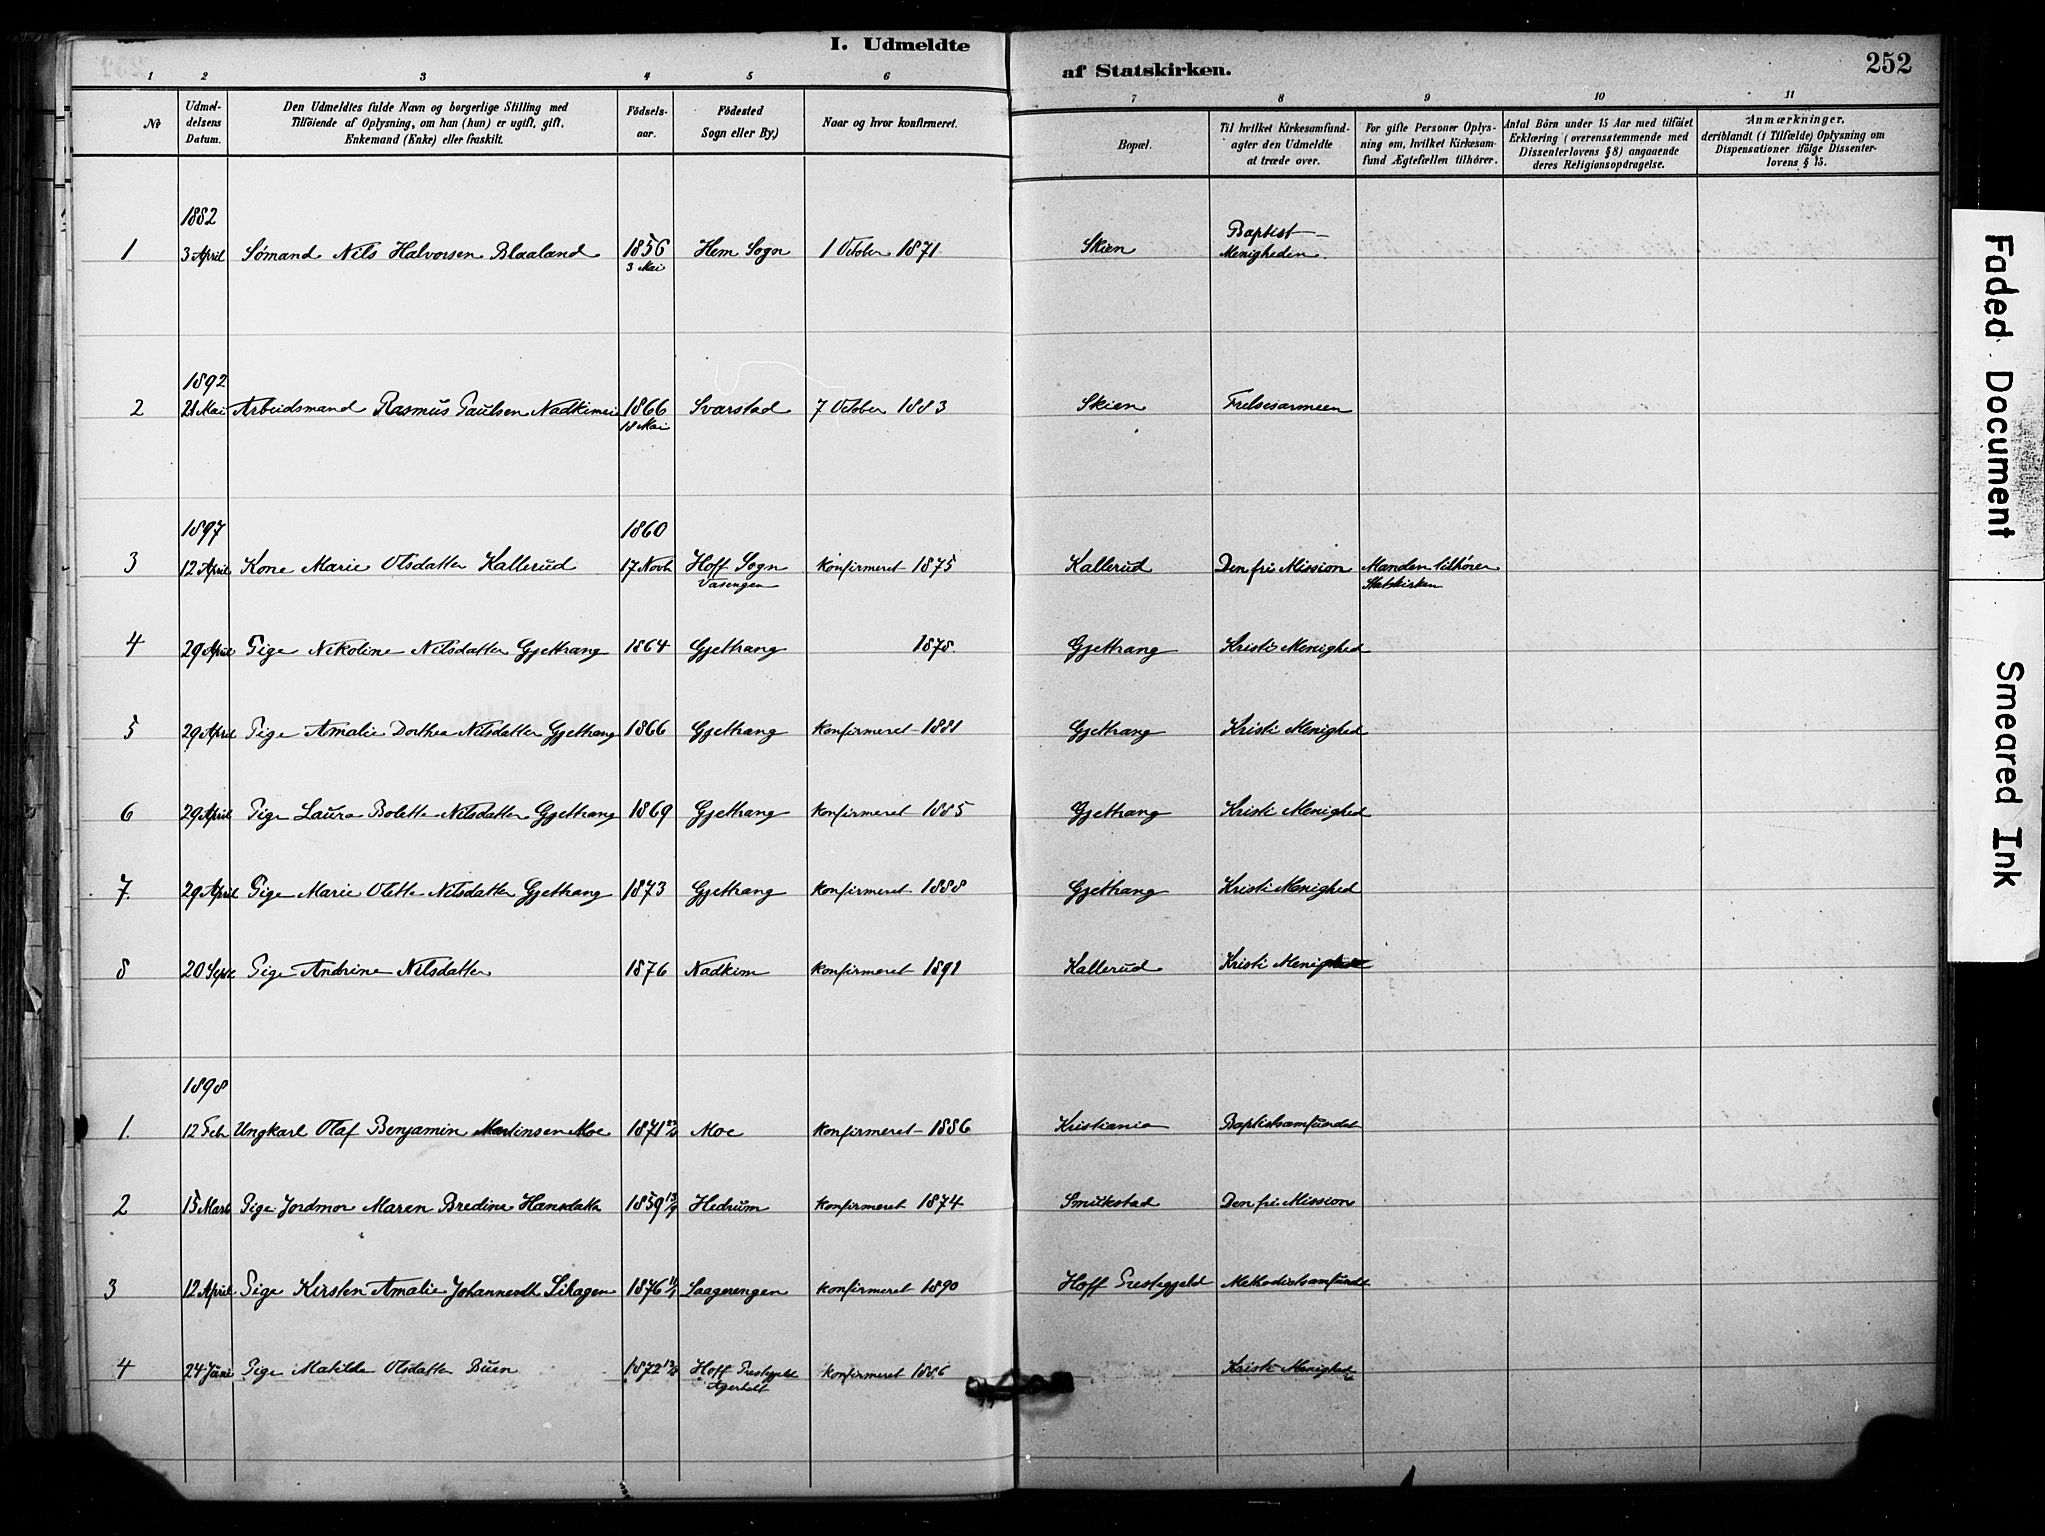 I. Udmeldte af Statskirken. 252
1 2 3 4 5 6 7 8 9 10 11
Nr
Udmeldelsens Datum.
Den Udmeldtes fulde Navn og borgerlige Stilling med
Tilföiende af Oplysning, om han (hun) er ugift, gift,
Enkemand (Enke) eller fraskilt.
Födselsaar.
Födested
Sogn eller By.)
Naar og hvor konfirmeret.
Bopæl.
Til hvilket Kirkesamfund-
agter den Udmeldte
at træde over.
For gifte Personer Oplys-
ning om, hvilket Kirkesam-
fund Ægtefællen tilhörer.
Antal Börn under 15 Aar med tilföiet
Erklæring (overensstemmende med
Dissenterlovens § 8) angaaende
deres Religionsopdragelse.
Anmærkninger,
deriblandt (i Tilfælde) Oplysning om
Dispensationer ifölge Dissenter-
lovens § 15.
1882
1 3 April Sømand Nils Halvorsen Blaaland 1856 Hem Sogn 1 October 1871 Skien Baptist-
3 Mai Menigheden.
1892
2 21 Mai Arbeidsmand Rasmus Paulsen Nadkimeie 1866 Svarstad 7 October 1883 Skien Frelsesarmeen
18 Mai
1897 1860
3 12 April Kone Marie Olsdatter Kallerud 17 Novb Hoff Sogn Konfirmeret 1875 Kallerud Den fri Mission Manden tilhører
Vasengen Statskirken
4 29 April Pige Nikoline Nilsdatter Gjettrang 1864 Gjettrang 1878 Gjettrang Kristi Menighed
5 29 April Pige Amalie Dorthea Nilsdatter Gjettrang 1866 Gjettrang Konfirmeret 1881 Gjettrang Kristi Menighed
6 29 April Pige Laura Bolette Nilsdatter Gjettrang 1869 Gjettrang Konfirmeret 1885 Gjettrang Kristi Menighed
7. 29 April Pige Marie Olette Nilsdatter Gjettrang 1873 Gjettrang Konfirmeret 1888 Gjettrang Kristi Menighed
8 20 Sept Pige Andrine Nilsdatter 1876 Nadkim Konfirmeret 1891 Kallerud Kristi Menighed
1898
1. 12 Feb Ungkarl Olaf Benjamin Martinsen Moe 1871 Moe Konfirmeret 1886 Kristiania Baptistsamfundet
2 15 Marts Pige Jordmor Maren Bredine Hansdatter 1859 Hedrum Konfirmeret 1874 Smukstad Den fri Mission
3 12 April Pige Kirsten Amalie Johannesdt 1876 Laagerengen Konfirmeret 1890 Hoff Prestegjeld Methodistsamfundet
4 24 Juni Pige Matilde Olsdatter Buen 1872 Hoff Prestegjeld Konfirmeret 1886 Kristi Menighed
Faded Document
Smeared Ink